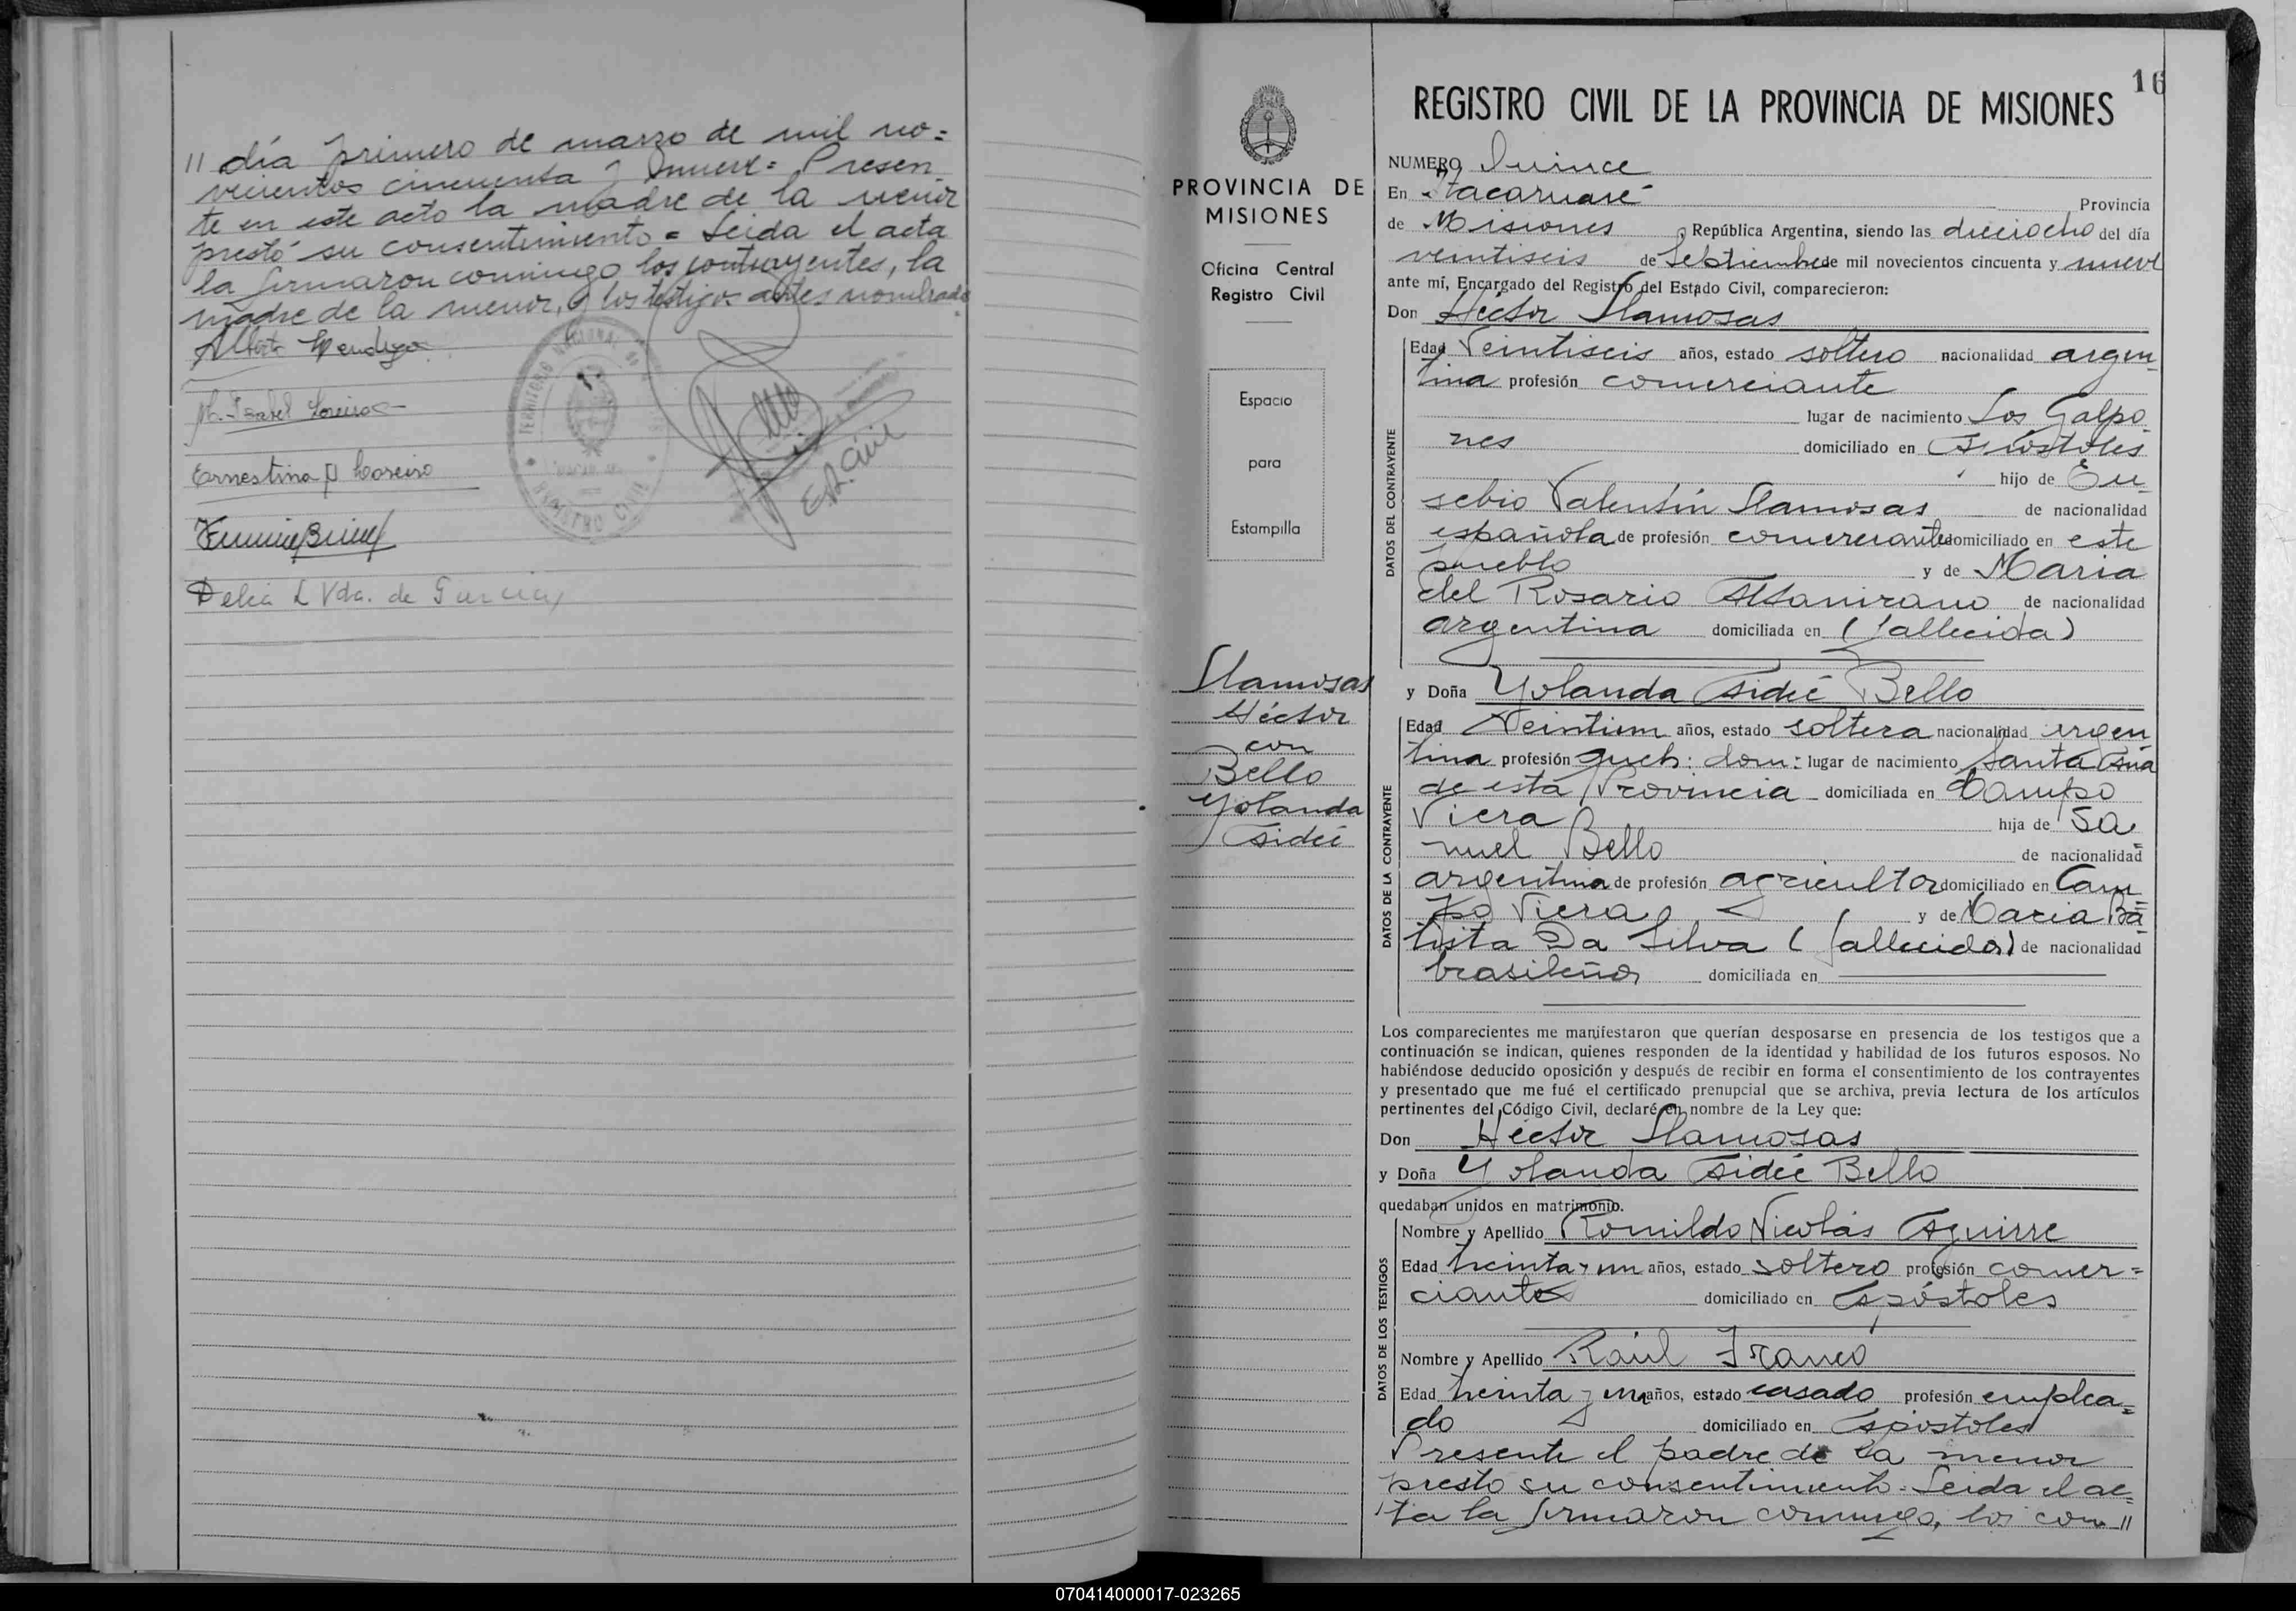 // día primero de marzo de mil no=
vecientos cincuenta y nueve= Presen
te en este acto la madre de la menor
prestó su consentimiento = Leida el acta
la firmaron conmigo los contrayentes, la
madre de la menor, y los testigos antes nombrados
M. Isabel Loreiro
Ernestina P Loreiro
Delia L Vda. de Garcia
TERRITORIO NACIONAL
REGISTRO CIVIL
Est. Civil
PROVINCIA DE
MISIONES
Oficina Central
Registro Civil
Espacio
para
Estampilla
Llamosas
Héctor
con
Bello
Yolanda
Aidée
16
REGISTRO CIVIL DE LA PROVINCIA DE MISIONES
NUMERO Quince
En Itacaruaré Provincia
de Misiones, República Argentina, siendo las dieciocho del día
veintiseis de Septiembre de mil novecientos cincuenta y nueve
ante mí, Encargado del Registro del Estado Civil, comparecieron:
Don Héctor Llamosas
DATOS DEL CONTRAYENTE
Edad Veintiseis años, estado soltero nacionalidad argen
tina profesión comerciante
lugar de nacimiento Los Galpo
nes domiciliado en Apóstoles
hijo de Eu
sebio Valentín Llamosas de nacionalidad
española de profesión comerciante domiciliado en este
pueblo y de Maria
del Rosario Altamirano de nacionalidad
argentina domiciliada en (fallecida)
y Doña Yolanda Aidée Bello
DATOS DE LA CONTRAYENTE
Edad Veintiun años, estado soltera nacionalidad argen
tina profesión queh: dom: lugar de nacimiento Santa Ana
de esta Provincia domiciliada en Campo
Viera hija de Sa
muel Bello de nacionalidad
argentina de profesión agricultor domiciliado en Cam
po Viera y de Maria Ba
tista Da Silva (fallecida) de nacionalidad
brasileña domiciliada en
Los comparecientes me manifestaron que querían desposarse en presencia de los testigos que a
continuación se indican, quienes responden de la identidad y habilidad de los futuros esposos. No
habiéndose deducido oposición y después de recibir en forma el consentimiento de los contrayentes
y presentado que me fué el certificado prenupcial que se archiva, previa lectura de los artículos
pertinentes del Código Civil, declaré en nombre de la Ley que:
Don Héctor Llamosas
y Doña Yolanda Aidée Bello
quedaban unidos en matrimonio.
DATOS DE LOS TESTIGOS
Nombre y Apellido Romildo Nicolás Aguirre
Edad treinta y un años, estado soltero profesión comer=
ciante domiciliado en Apóstoles
Nombre y Apellido Raúl Franco
Edad treinta y un años, estado casado profesión emplea=
do domiciliado en Apóstoles
Presente el padre de la menor
presto su consentimiento. Leida el ac=
ta la firmaron conmigo, los con //
070414000017-023265